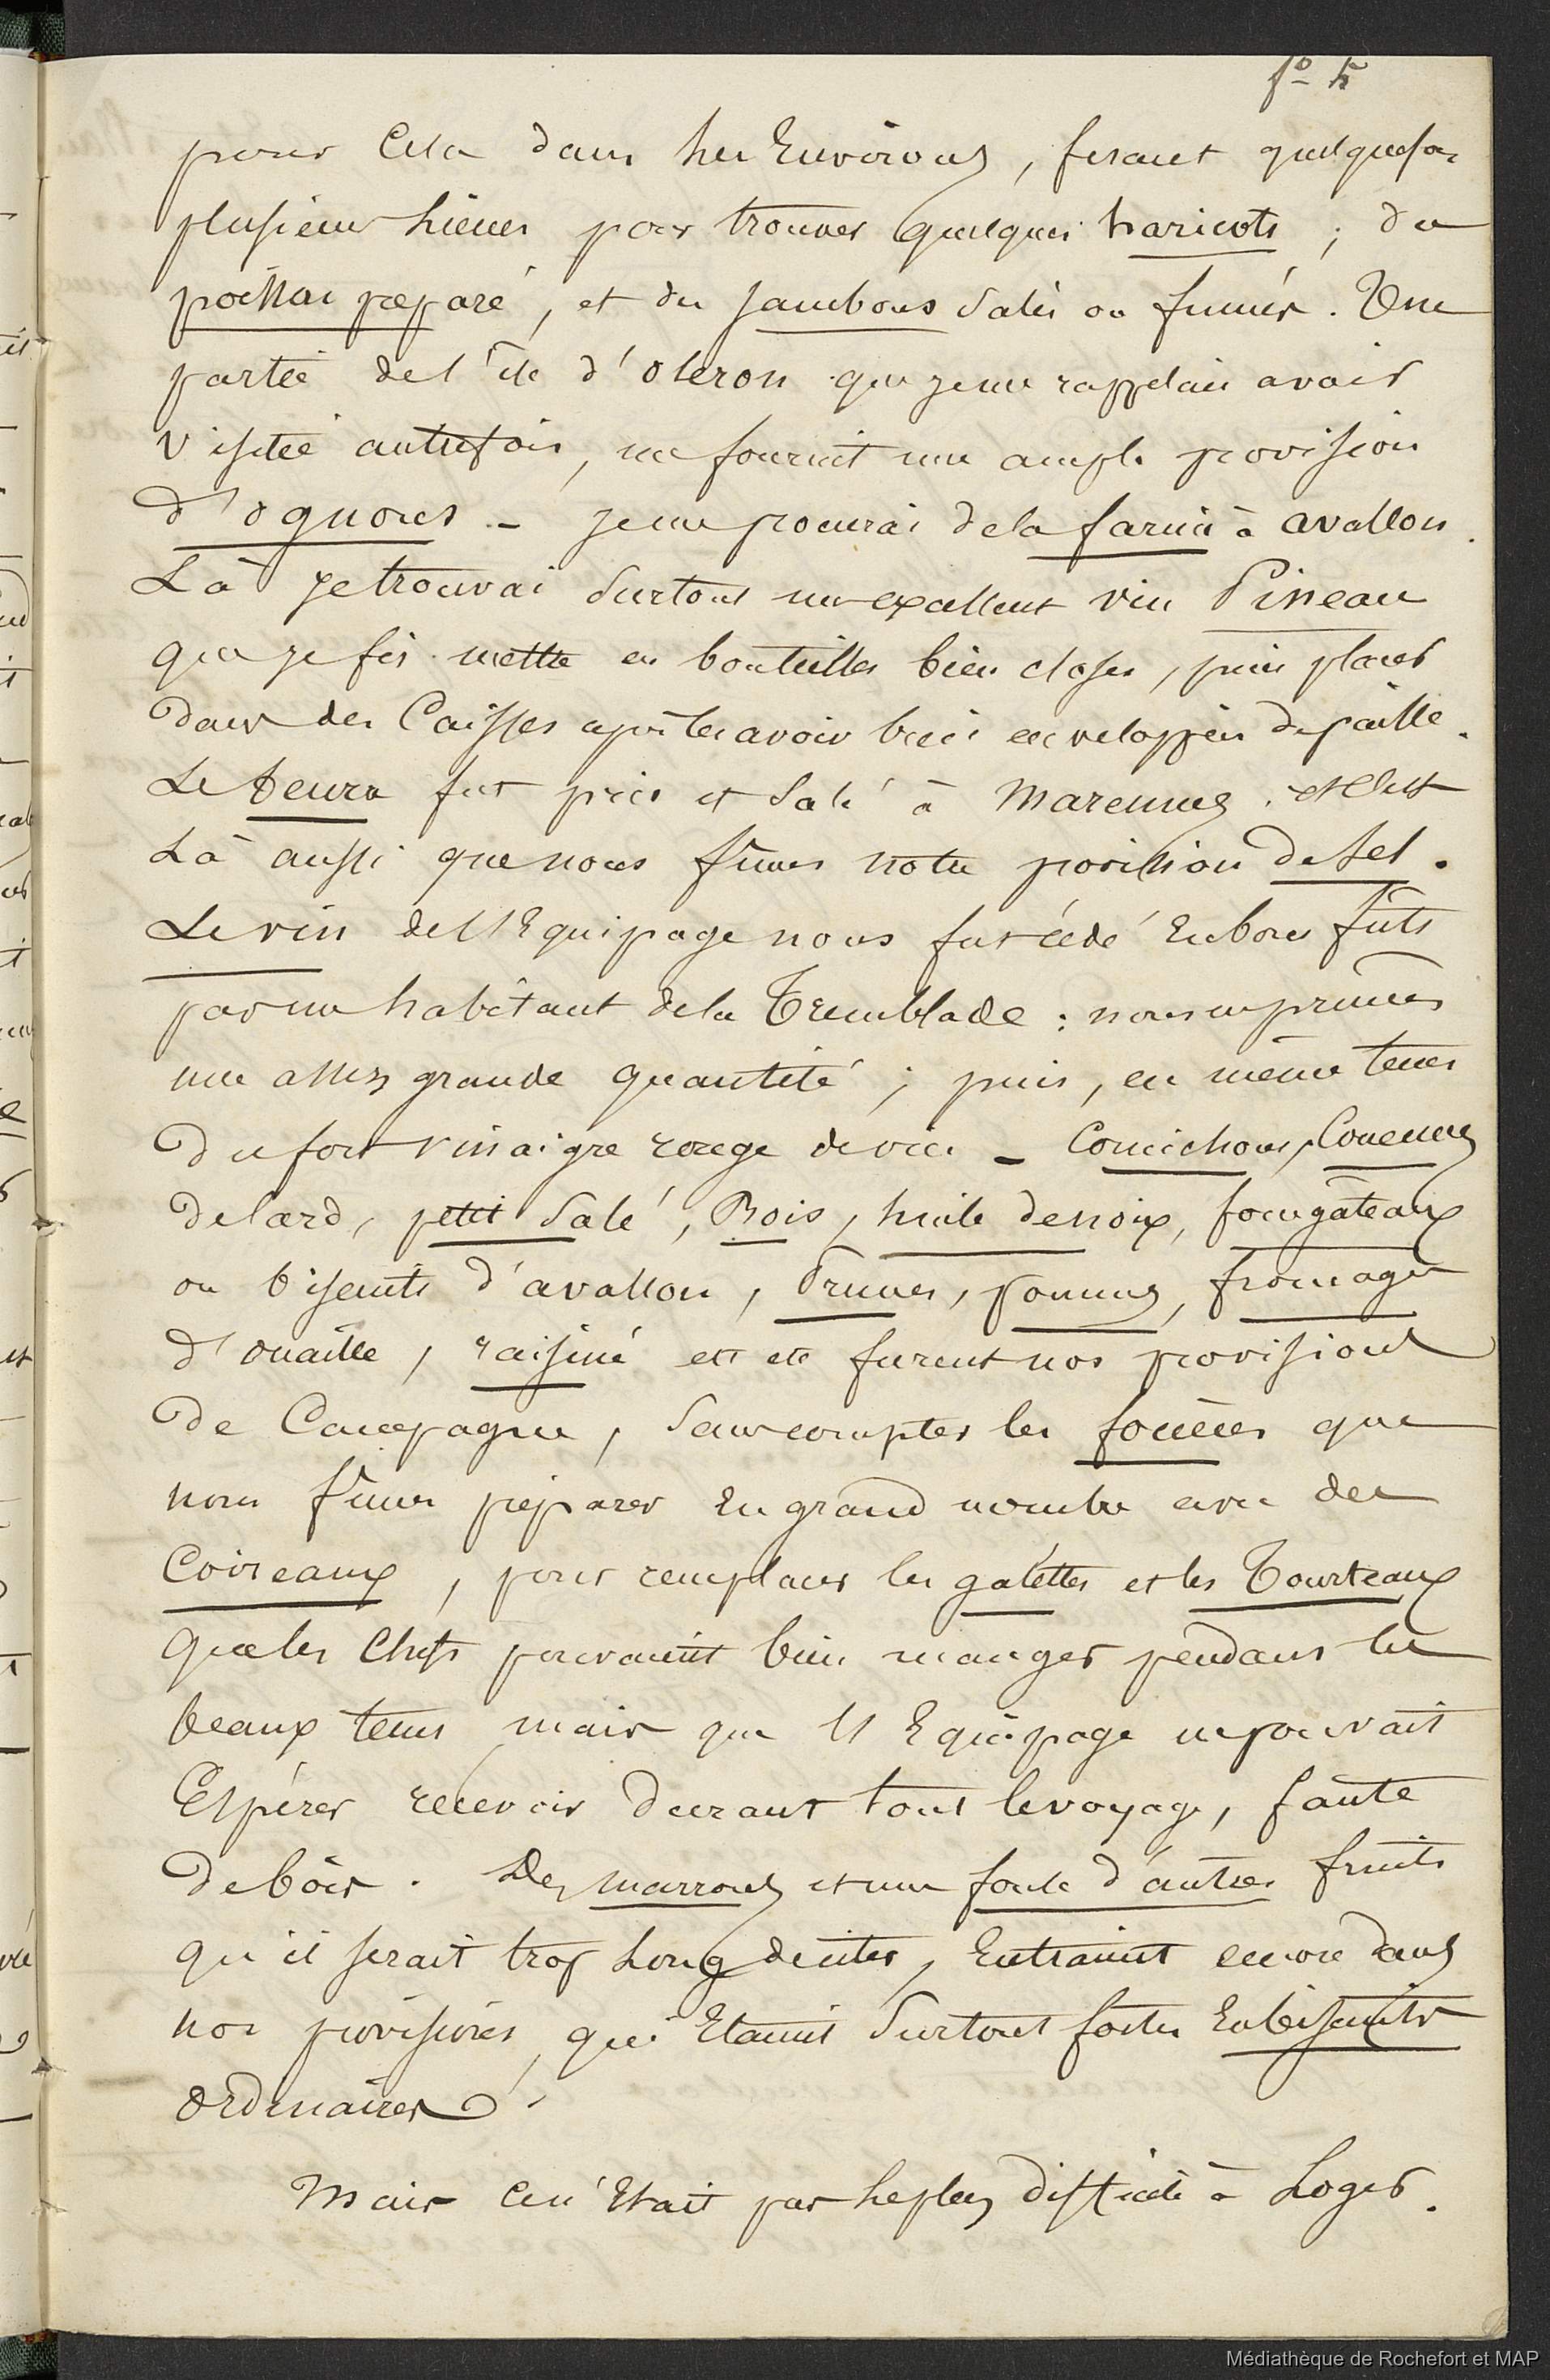 fo 5
pour Cela dans les Environs, fesant quelquefois
plusieurs lieues pour trouver quelques haricots ; du
poisson preparé, et des jambons salés ou fumés. Une
partie de l'île d'oleron que je me rappelais avoir
visitée autrefois, me fournit une ample provision
d'ognons - je me procurai de la farine à avallon.
Là je trouvai surtout un excellent vin Pineau
que je fis mettre en bouteilles bien closes, puis placer
dans des Caisses après les avoir bien enveloppées de paille.
Le beurre fut pris et salé à Marennes. et C'est
Là aussi que nous fîmes notre provision de sel.
Le vin de l'Equipage nous fut cédé En bons fûts
par un habitant de la Tremblade : nous en primes
une assez grande quantité ; puis, en même tems
du fort vinaigre rouge de vin - Cornichons, Couennes
de lard, petit salé, Bois, huile de noix, fourgateaux
ou biscuits d'avallon, Prunes, pommes, fromages
d'ouaille, raisiné etc etc furent nos provisions
de Campagne, sans compter les fouées que
nous fîmes préparer En grand nombre avec des
Coireaux, pour remplacer les galettes et les Tourteaux
que les Chefs pouvaient bien manger pendant les
beaux tems mais que l'Equipage ne pouvait
Espérer recevoir durant tout le voyage, faute
de bois. Des marrons et une foule d'autres fruits
qu'il serait trop Long de citer, Entraient encore dans
nos provisions, qui Etaient surtout fortes En biscuits
ordinaires.
Mais Ce n'Etait pas le plus difficile à Loger.
Médiathèque de Rochefort et MAP